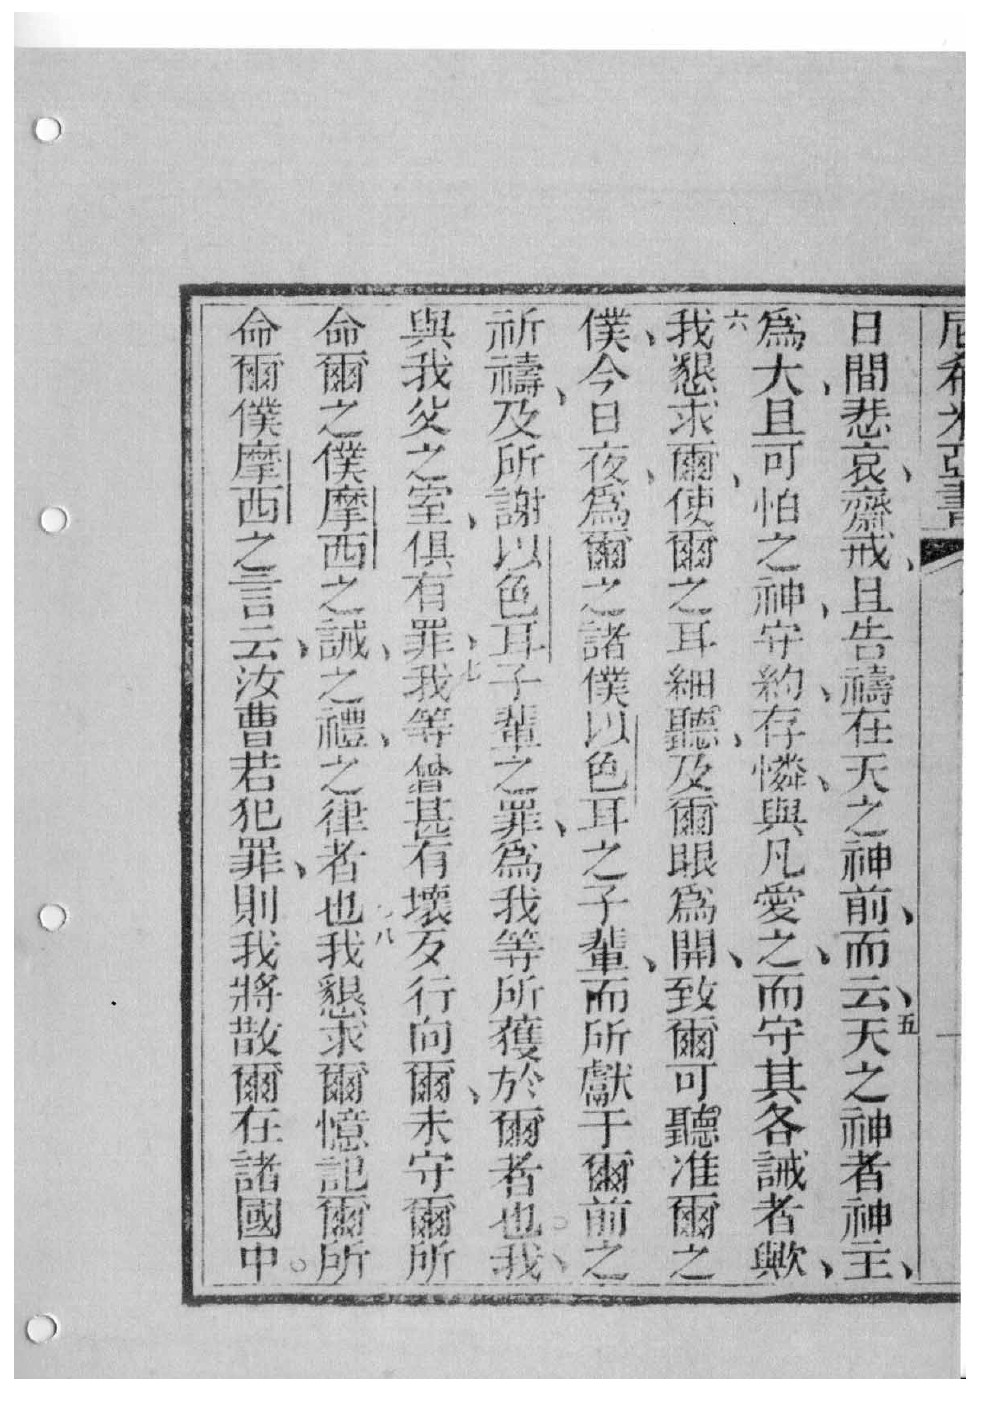 尼希米亞書
日間悲哀、齋戒、且告禱在天之神前、而云、五天之神者神主、
爲大、且可怕之神、守約、存憐、與凡愛之、而守其各誡者歟、
六我懇求爾、使爾之耳細聽、及爾眼爲開、致爾可聽准爾之
僕、今日夜、爲爾之諸僕以色耳之子輩、而所獻于爾前之
祈禱、及所謝以色耳子輩之罪、爲我等所獲於爾者也。我、
與我父之室、俱有罪、七我等曾甚有壞歹行向爾、未守爾所
命爾之僕摩西之誡、之禮、之律者也八我懇求爾憶記爾所
命爾僕摩西之言云、汝曹若犯罪、則我將散爾在諸國中。